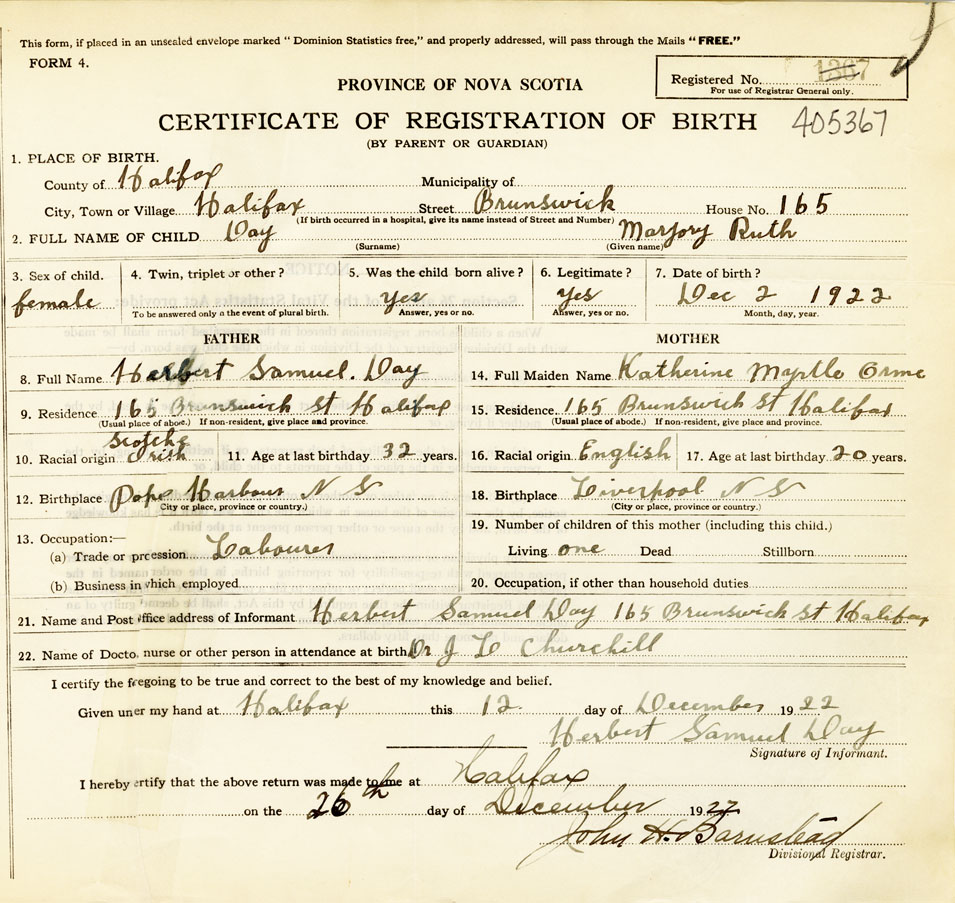 This form, if placed in an unsealed envelope marked "Dominion Statistics free," and properly addressed, will pass through the Mails "FREE."
FORM 4.
Registered No. 1367
For use of Registrar General only.
PROVINCE OF NOVA SCOTIA
CERTIFICATE OF REGISTRATION OF BIRTH 405367
(BY PARENT OR GUARDIAN)
1. PLACE OF BIRTH.
County of Halifax Municipality of
City, Town or Village Halifax Street Brunswick House No. 165
(If birth occurred in a hospital, give its name instead of Street and Number)
2. FULL NAME OF CHILD Day Marjory Ruth
(Surname) (Given name)
3. Sex of child. 4. Twin, triplet or other? 5. Was the child born alive? 6. Legitimate? 7. Date of birth?
female yes yes Dec 2 1922
To be answered only in the event of plural birth. Answer, yes or no. Answer, yes or no. Month, day, year.
FATHER MOTHER
8. Full Name Herbert Samuel. Day 14. Full Maiden Name Katherine Myrtle Orme
9. Residence 165 Brunswick St Halifax 15. Residence 165 Brunswick St Halifax
(Usual place of abode.) If non-resident, give place and province. (Usual place of abode.) If non-resident, give place and province.
Scotch
10. Racial origin Irish 11. Age at last birthday 32 years. 16. Racial origin English 17. Age at last birthday 20 years.
12. Birthplace Pope Harbour N S 18. Birthplace Liverpool N S
(City or place, province or country.) (City or place, province or country.)
13. Occupation:— 19. Number of children of this mother (including this child.)
(a) Trade or profession Labourer Living one Dead Stillborn
(b) Business in which employed 20. Occupation, if other than household duties
21. Name and Post office address of Informant Herbert Samuel Day 165 Brunswick St Halifax
22. Name of Doctor, nurse or other person in attendance at birth Dr J L Churchill
I certify the foregoing to be true and correct to the best of my knowledge and belief.
Given under my hand at Halifax this 12 day of December 1922
Herbert Samuel Day
Signature of Informant.
I hereby certify that the above return was made to me at Halifax
on the 26th day of December 1922
John H. Barnstead
Divisional Registrar.